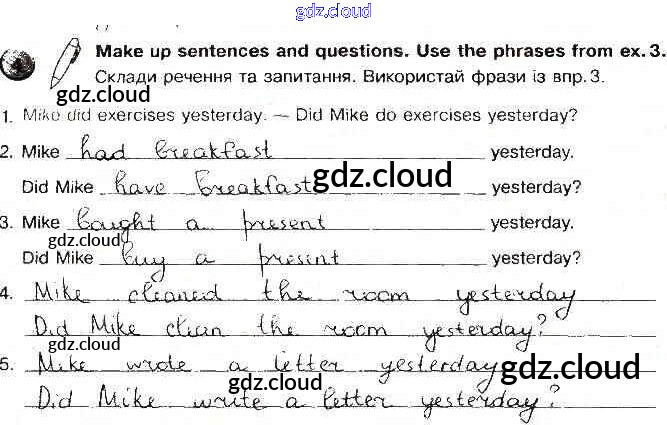 gdz.cloud
Make up sentences and questions. Use the phrases from ex. 3.
Склади речення та запитання. Використай фрази із впр. 3.
gdz.cloud
1. Mike did exercises yesterday. — Did Mike do exercises yesterday?
2. Mike had breakfast yesterday.
Did Mike have breakfast yesterday?
gdz.cloud
3. Mike bought a present yesterday.
gdz.cloud
Did Mike buy a present yesterday?
4. Mike cleaned the room yesterday
Did Mike clean the room yesterday?
gdz.cloud
5. Mike wrote a letter yesterday
gdz.cloud
gdz.cloud
Did Mike write a letter yesterday?